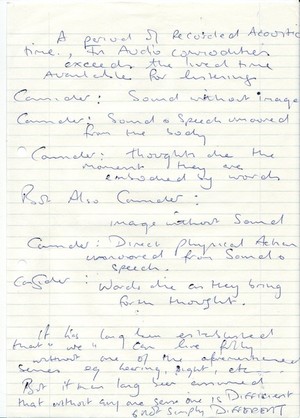 A period of Recorded Acoustic
time., In Audio commodities
exceeds the lived time
Available for listening
Consider: Sound without image
Consider: Sound & Speech unmoored
from the body
Consider: thoughts die the
moment they are
embodied by words
But Also Consider:
image without Sound
Consider: Direct physical Action
unmoored from Sound &
speech.
Consider: Words die as they bring
forth thought.
It has long been established
that "we" can live fully
without one of the aforementioned
senses eg hearing, sight, etc
But it has long been assumed
that without any one sense one is DIFFERENT
& not simply DIFFERENT